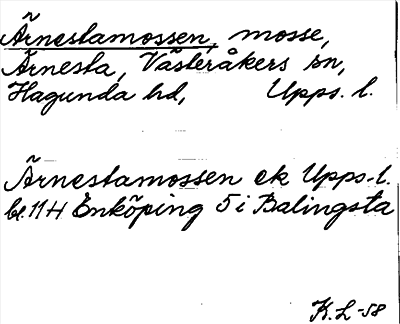 Ärnestamossen, mosse,
Ärnesta, Västeråkers sn,
Hagunda hd, Upps. l.
Ärnestamossen ek Upps. l.
bl. 11H Enköping 5 i Balingsta
K.L -58